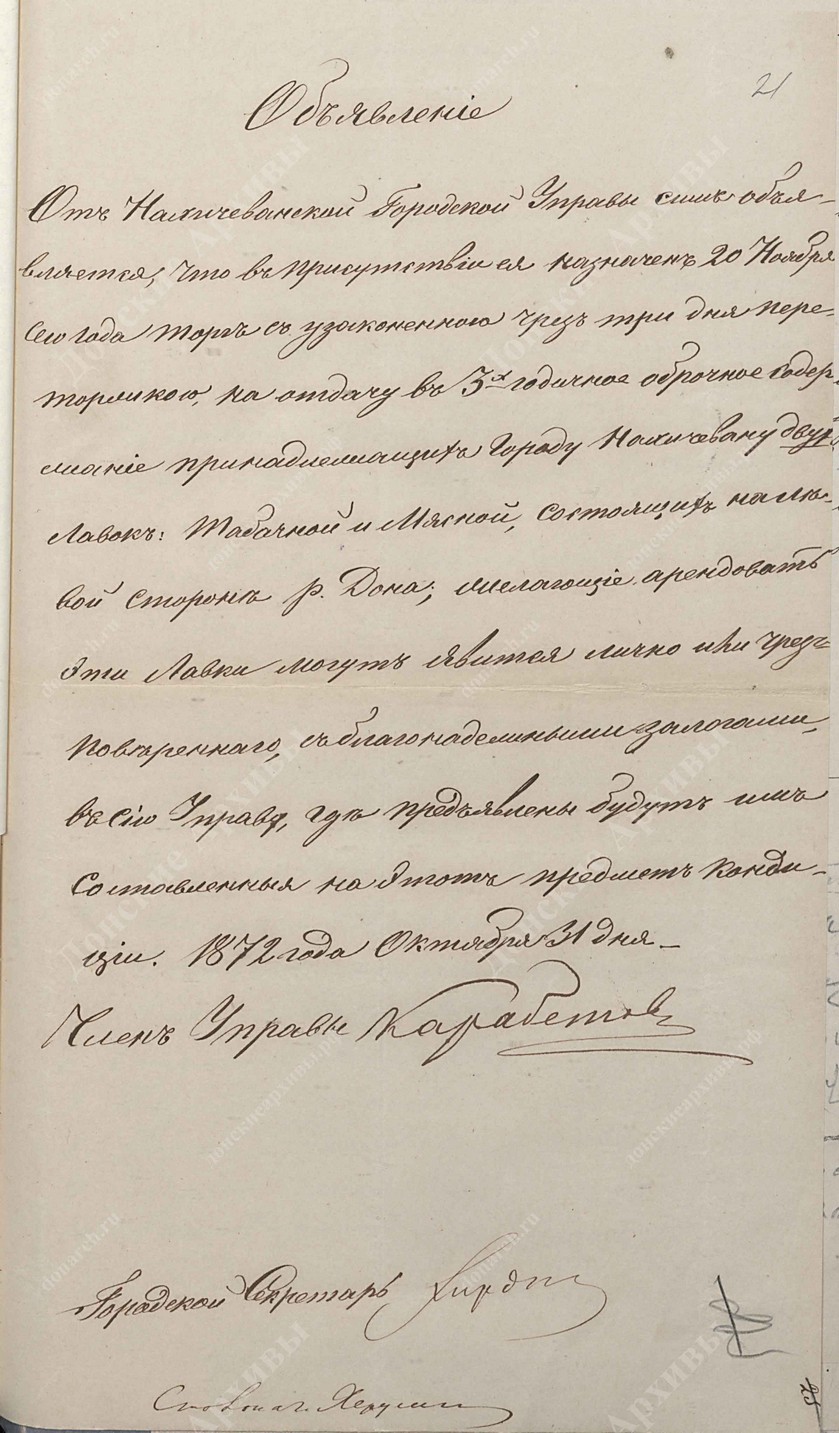 21
Объявленіе
Отъ Нахичеванской Городской Управы симъ объя-
вляется, что въ присутствіи ея назначенъ 20 Ноября
сего года торгъ съ узаконенною чрезъ три дня пере-
торжкою, на отдачу въ 3х годичное оброчное содер-
жаніе принадлежащихъ Городу Нахичевану двухъ
Лавокъ: Табачной и Мясной, состоящихъ на лѣ-
вой сторонѣ р. Дона; желающіе арендовать
эти Лавки могутъ явится лично или чрезъ
повѣреннаго, съ благонадежными залогами,
въ сію Управу, гдѣ предъявлены будутъ имъ
составленныя на этотъ предметъ конди-
ціи. 1872 года Октября 31 дня.
Членъ Управы Карабетов
Городской Секретарь